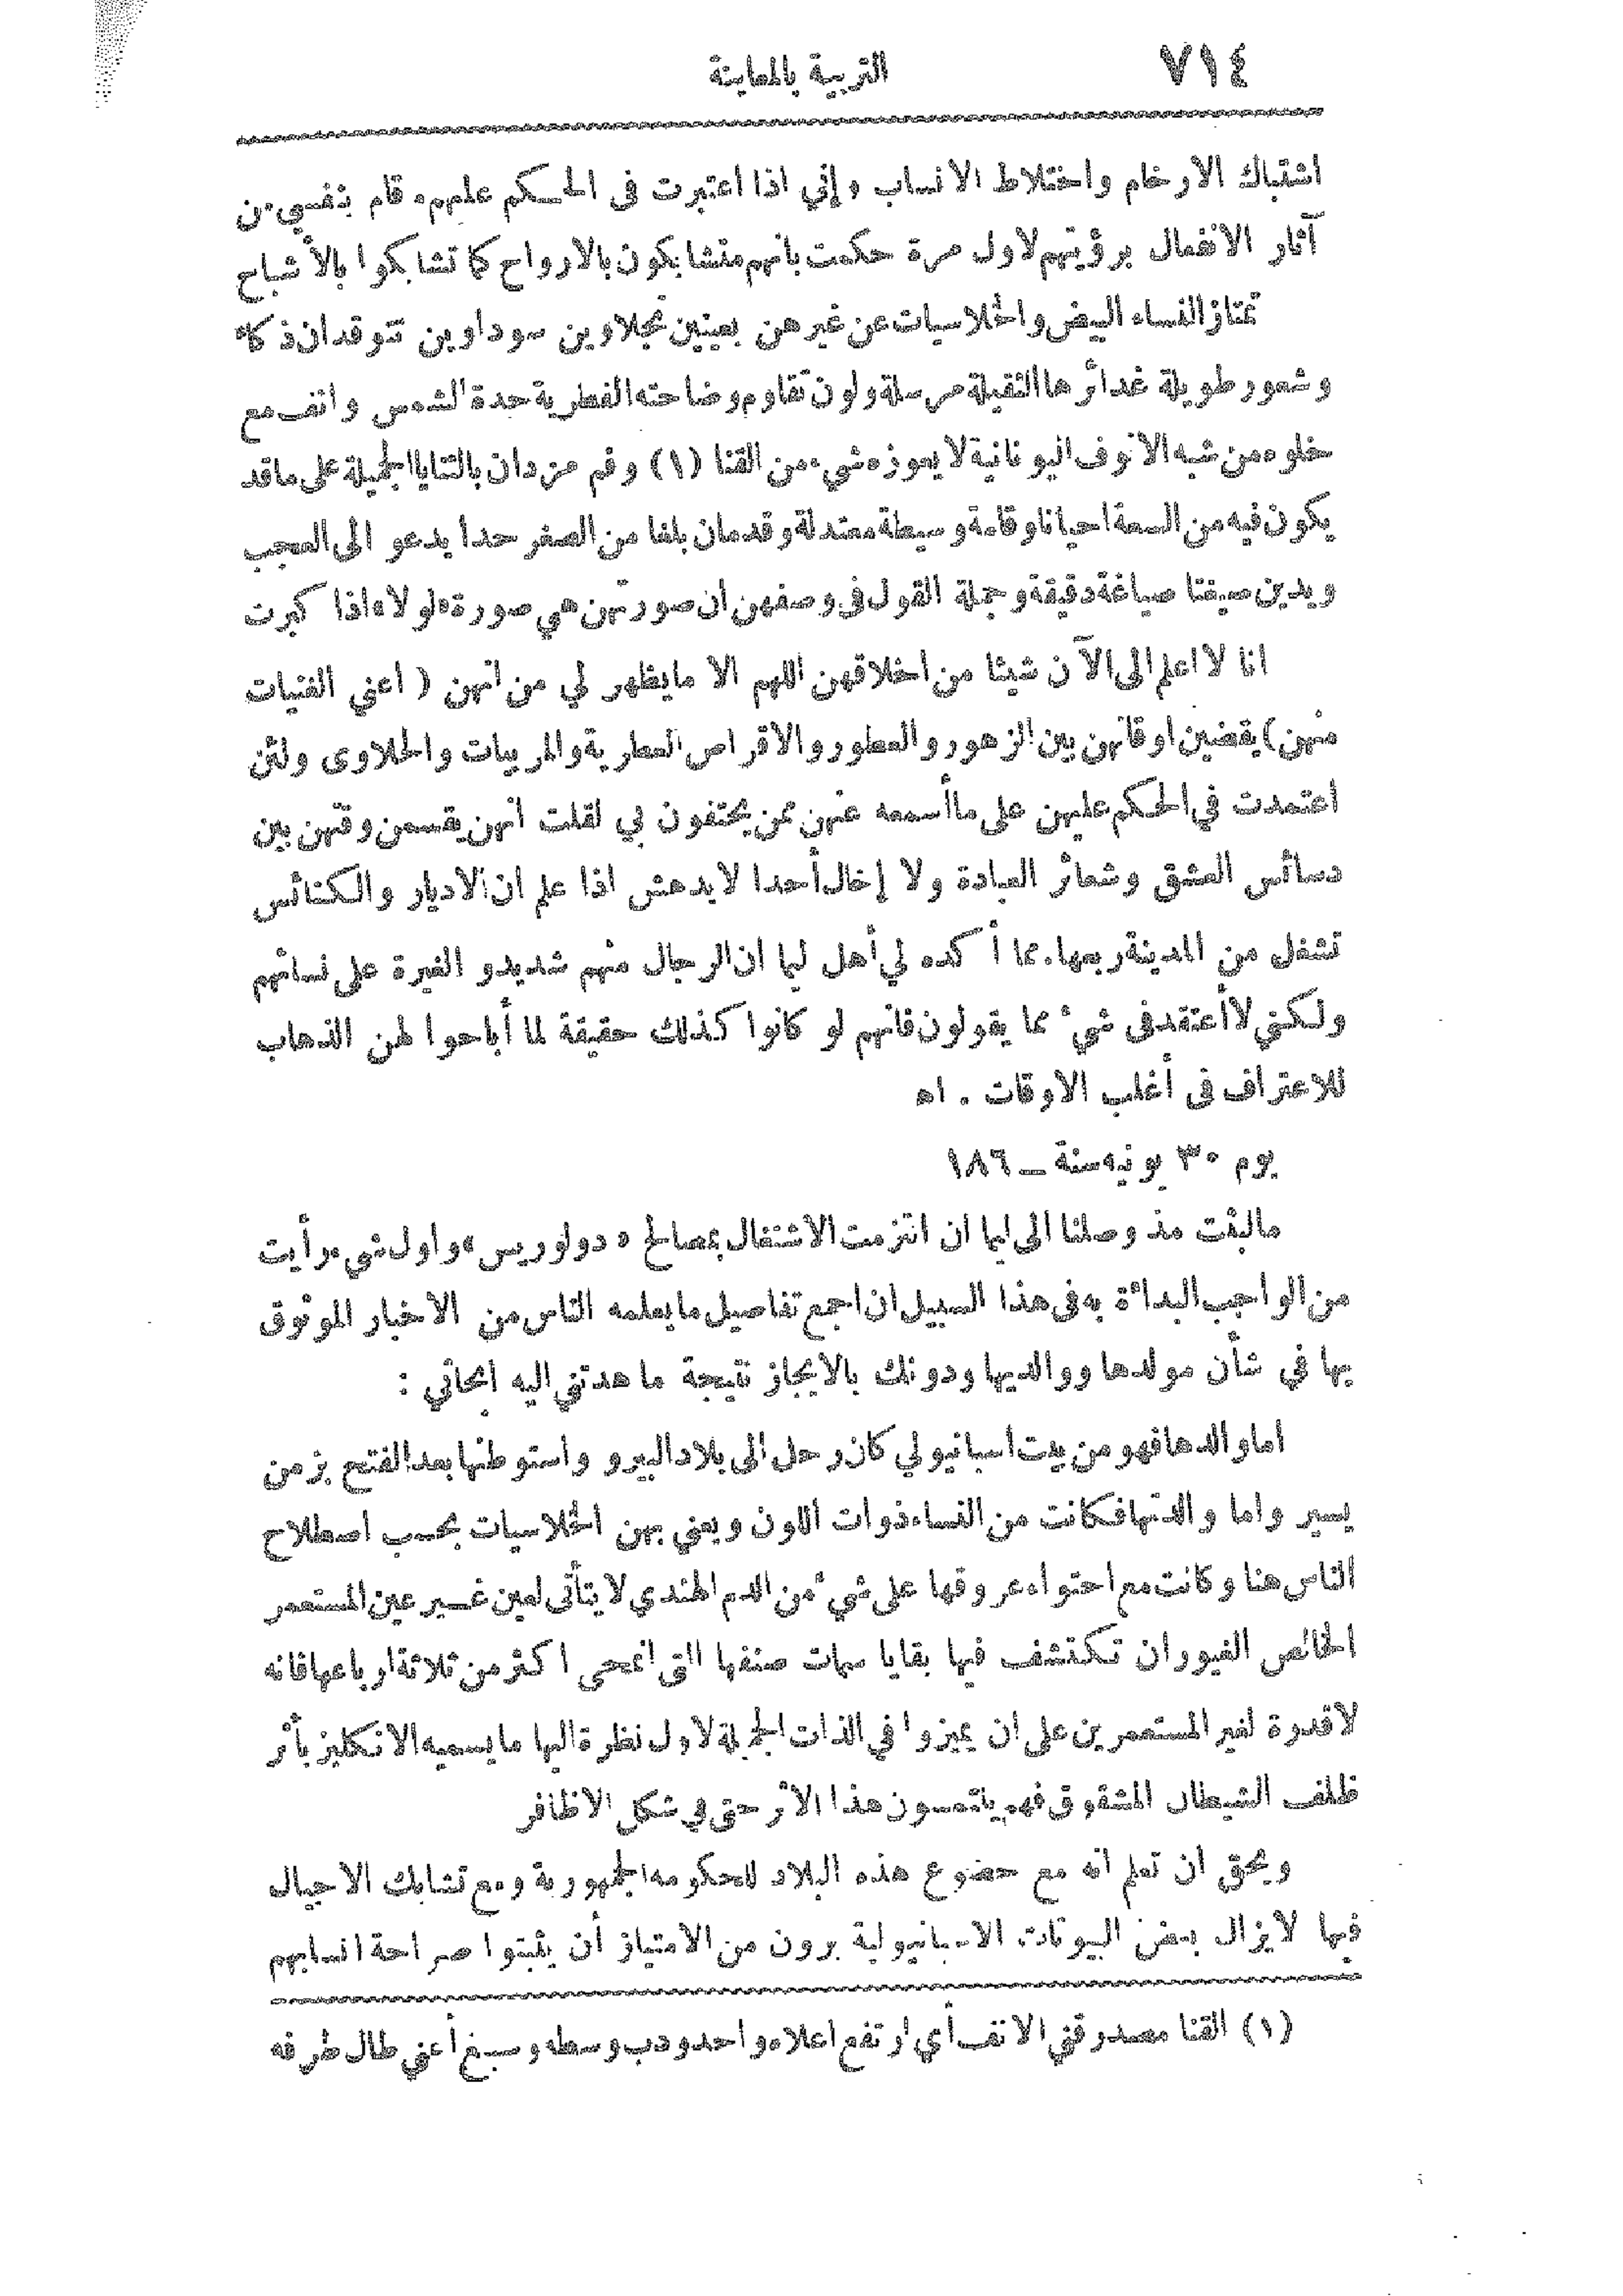 ٧١٤
التربية بالمعاينة
اشتباك الارحام واختلاط الانساب وإني اذا اعتبرت فى الحكم عليهم ما قام بنفسي من
آثار الانفعال برؤيتهم لاول مرة حكمت بانهم متشابكون بالارواح كما تشابكوا بالأشباح
تمتاز النساء البيض والخلاسيات عن غيرهن بعينين نجلاوين سوداوين تتوقدان ذكاء
وشعور طويلة غدائرها الثقيلة مرسلة ولون تقاوم وضاحته الفطرية حدة الشمس وانف مع
خلوه من شبه الانوف اليونانية لا يعوزه شيء من القنا (١) وفم مزدان بالثنايا الجميلة على ما قد
يكون فيه من السعة احيانا وقامة وسيطة معتدلة وقدمان بلغا من الصغر حدا يدعو الى العجب
ويدين صيغتا صياغة دقيقة وجملة القول فى وصفهن ان صورتهن هي صورة «لولا» اذا كبرت
انا لا اعلم الى الآن شيئا من اخلاقهن اللهم الا ما يظهر لي من انهن ( اعني الفتيات
منهن) يقضين اوقاتهن بين الزهور والعطور والاقراص العطرية والمربيات والحلاوى ولئن
اعتمدت في الحكم عليهن على ما أسمعه عنهن ممن يحتفون بي لقلت انهن يقسمن وقتهن بين
دسائس العشق وشعائر العبادة ولا إخال أحدا لا يدهش اذا علم ان الاديار والكنائس
تشغل من المدينة ربعها. مما أكده لي أهل ليما ان الرجال منهم شديدو الغيرة على نسائهم
ولكني لا أعتقد فى شيء مما يقولون فانهم لو كانوا كذلك حقيقة لما أباحوا لهن الذهاب
للاعتراف فى أغلب الاوقات . اه
يوم ٣٠ يونيه سنة ــ ١٨٦
ما لبثت مذ وصلنا الى ليما ان التزمت الاشتغال بمصالح «دولوريس» واول شيء رأيت
من الواجب البداءة به فى هذا السبيل ان اجمع تفاصيل ما يعلمه الناس من الاخبار الموثوق
بها في شأن مولدها ووالديها ودونك بالايجاز نتيجة ما هدتني اليه ابحاثي :
اما والدها فهو من بيت اسبانيولي كان رحل الى بلاد البيرو واستوطنها بعد الفتح بزمن
يسير واما والدتها فكانت من النساء ذوات اللون ويعني بهن الخلاسيات بحسب اصطلاح
الناس هنا وكانت مع احتواء عروقها على شيء من الدم الهندي لا يتأتى لعين غير عين المستعمر
الخالص الغيور ان تكتشف فيها بقايا سمات صنفها التى انمحى اكثر من ثلاثة ارباعها فانه
لا قدرة لغير المستعمرين على ان يميزوا في الذات الجميلة لاول نظرة اليها ما يسميه الانكليز بأثر
ظلف الشيطان المشقوق فهم يلتمسون هذا الاثر حتى في شكل الاظافر
ويحق ان تعلم انه مع خضوع هذه البلاد للحكومه الجمهورية ومع تشابك الاجيال
فيها لا يزال بعض البيوتات الاسبانيولية يرون من الامتياز أن يثبتوا صراحة انسابهم
(١) القنا مصدر قني الانف أي ارتفع اعلاه واحدودب وسطه وسبغ أعني طال طرفه